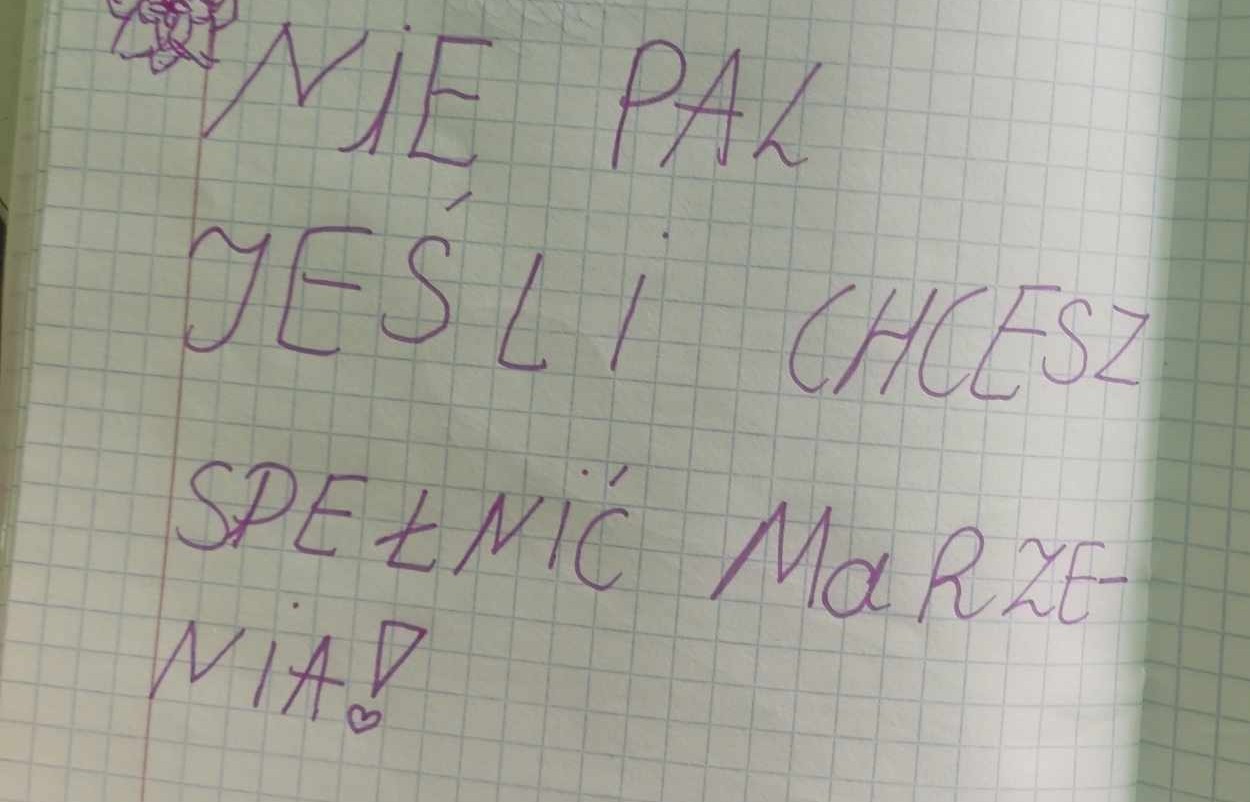 NiE PAL
JEŚLi CHCESZ
SPEŁNiĆ MaRZE-
NiA!